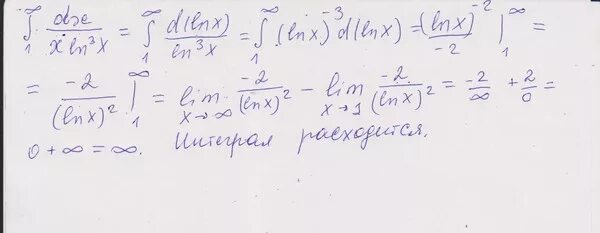 ∫₁^∞ dx / (x ln³x) = ∫₁^∞ d(lnx) / ln³x = ∫₁^∞ (lnx)⁻³ d(lnx) = (lnx)⁻² / -2 |₁^∞ =
= -2 / (lnx)² |₁^∞ = lim x→∞ -2 / (lnx)² - lim x→1 -2 / (lnx)² = -2/∞ + 2/0 =
0 + ∞ = ∞. Интеграл расходится.